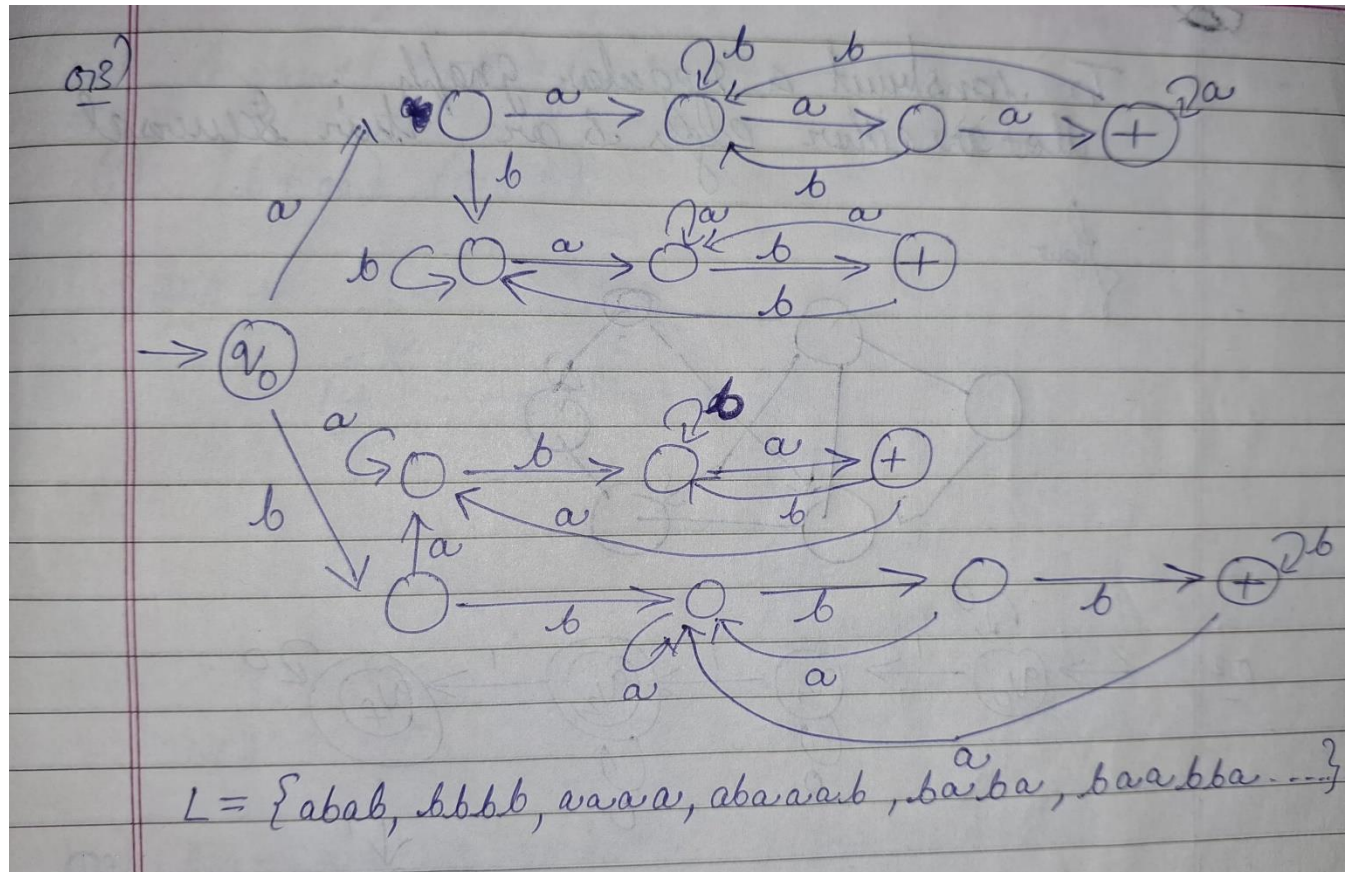 Q3)
b b
a a a a
b b
a
a a
b a b
b
q0
b
a b a
b a b
a
b b b b
a a
a
L = {abab, bbbb, aaaa, abaaab, baba, baabba ....}